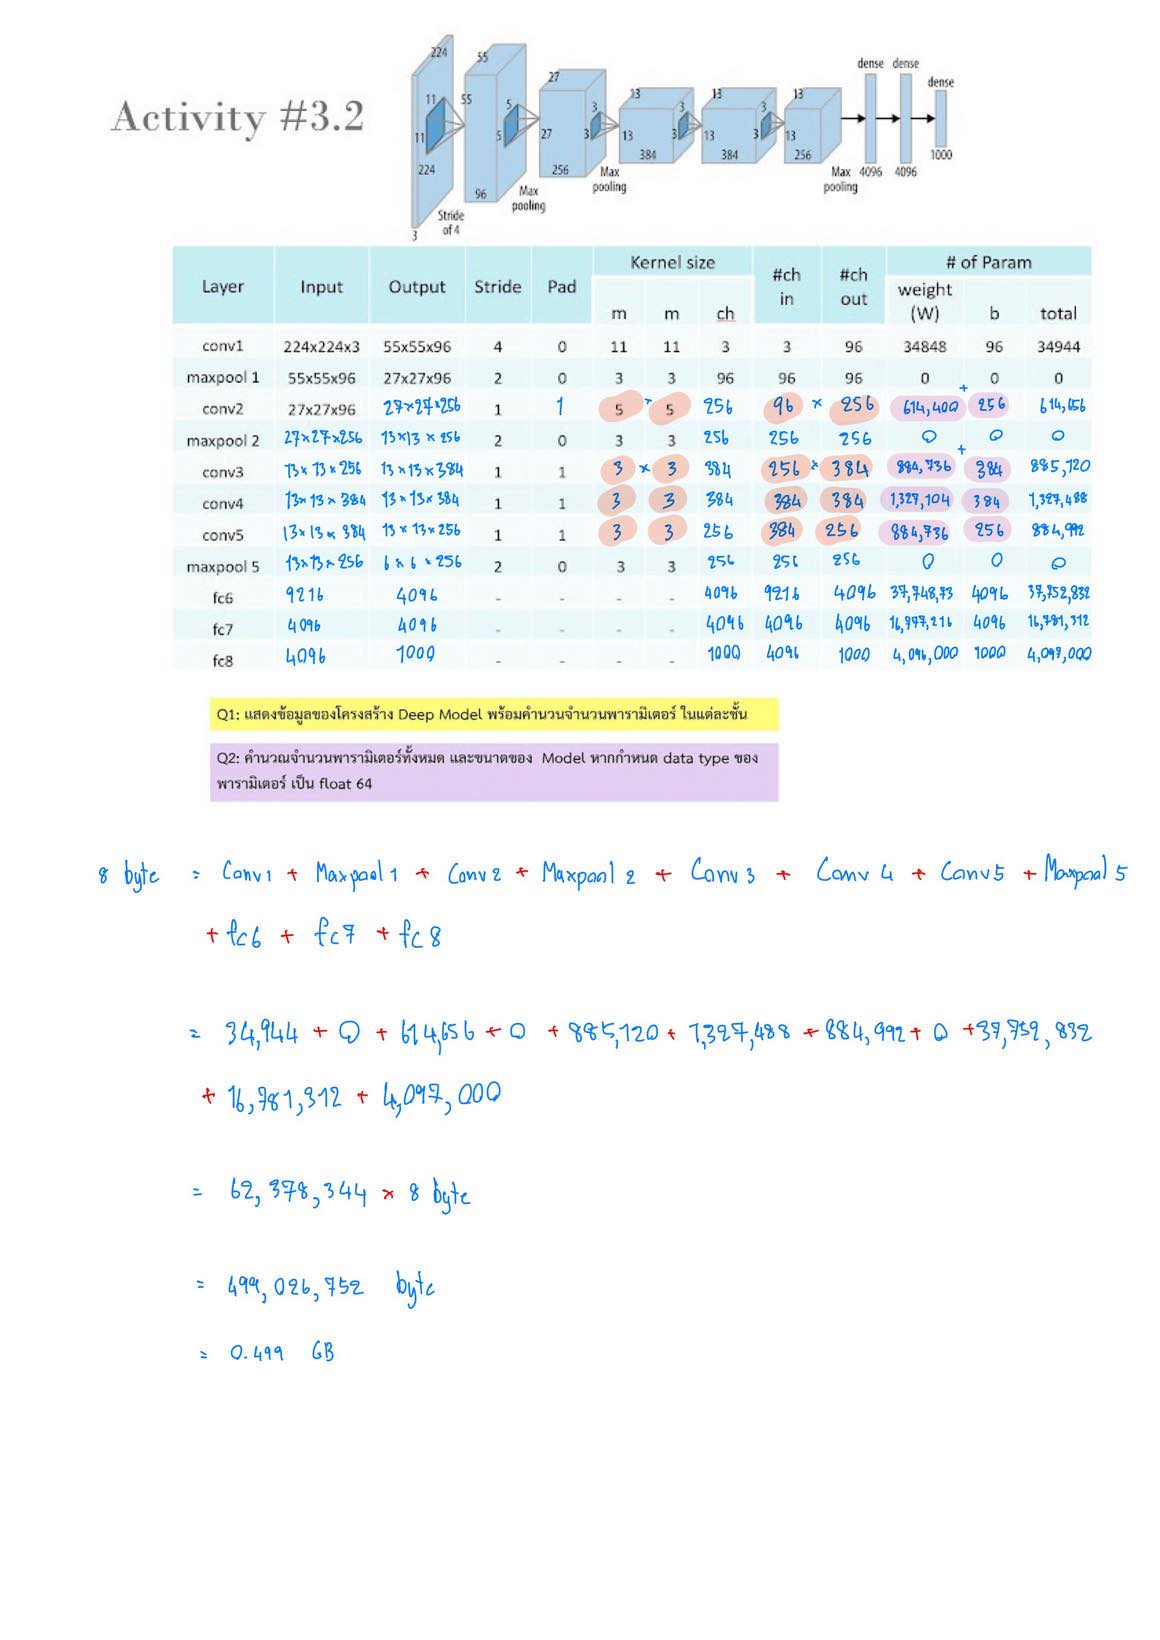 224 55 27 13 13 13 dense dense dense
Activity #3.2
11 55 5 3 3 3
11 5 27 3 13 3 13 3 13
224 256 384 384 256 1000
96 Max pooling Max pooling Max pooling 4096 4096
Stride of 4
3
Layer Input Output Stride Pad Kernel size #ch in #ch out # of Param
m m ch weight (W) b total
conv1 224x224x3 55x55x96 4 0 11 11 3 3 96 34848 96 34944
maxpool 1 55x55x96 27x27x96 2 0 3 3 96 96 96 0 + 0 0
conv2 27x27x96 27×27×256 1 1 5 × 5 256 96 × 256 614,400 256 614,656
maxpool 2 27×27×256 13×13×256 2 0 3 3 256 256 256 0 + 0 0
conv3 13×13×256 13×13×384 1 1 3 × 3 384 256 × 384 884,736 384 885,120
conv4 13×13×384 13×13×384 1 1 3 3 384 384 384 1,327,104 384 1,327,488
conv5 13×13×384 13×13×256 1 1 3 3 256 384 256 884,736 256 884,992
maxpool 5 13×13×256 6×6×256 2 0 3 3 256 256 256 0 0 0
fc6 9216 4096 - - - - 4096 9216 4096 37,748,73 4096 37,752,832
fc7 4096 4096 - - - - 4096 4096 4096 16,777,216 4096 16,781,312
fc8 4096 1000 - - - - 1000 4096 1000 4,096,000 1000 4,097,000
Q1: แสดงข้อมูลของโครงสร้าง Deep Model พร้อมคำนวนจำนวนพารามิเตอร์ ในแต่ละชั้น
Q2: คำนวณจำนวนพารามิเตอร์ทั้งหมด และขนาดของ Model หากกำหนด data type ของ
พารามิเตอร์ เป็น float 64
8 byte = Conv1 + Maxpool 1 + Conv 2 + Maxpool 2 + Conv 3 + Conv 4 + Conv 5 + Maxpool 5
+ fc6 + fc7 + fc8
= 34,944 + 0 + 614,656 + 0 + 885,120 + 1,327,488 + 884,992 + 0 + 37,752,832
+ 16,781,312 + 4,097,000
= 62,378,344 × 8 byte
= 499,026,752 byte
= 0.499 GB